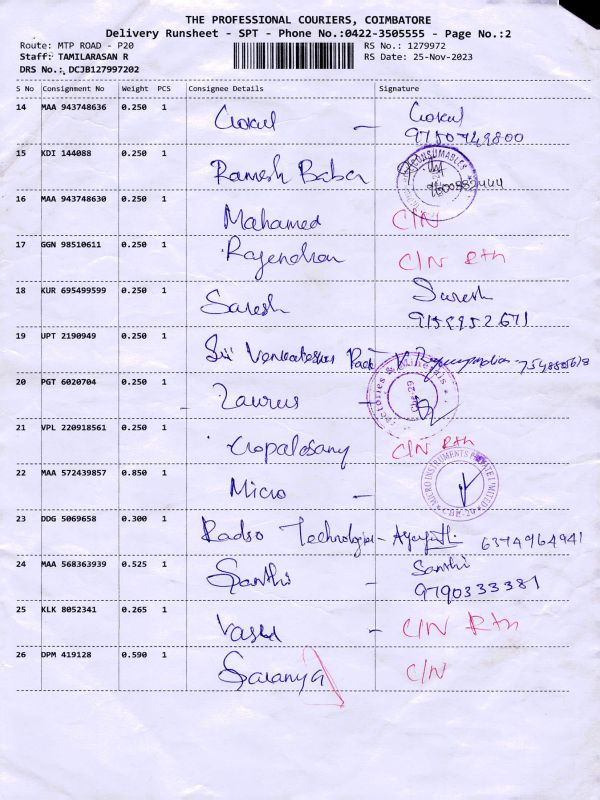 THE PROFESSIONAL COURIERS, COIMBATORE
Delivery Runsheet - SPT - Phone No.:0422-3505555 - Page No.:2
Route: MTP ROAD - P20 RS No.: 1279972
Staff: TAMILARASAN R RS Date: 25-Nov-2023
DRS No.: DCJB127997202
S No Consignment No Weight PCS Consignee Details Signature
14 MAA 943748636 0.250 1 Gokul - Gokul
9750749800
15 KDI 144088 0.250 1 Ramesh Babu CONSUMABLES
9600882444
16 MAA 943748630 0.250 1 Mahamed C/N
17 GGN 98510611 0.250 1 Rajendran C/N Rtn
18 KUR 695499599 0.250 1 Suresh Suresh
9159952671
19 UPT 2190949 0.250 1 Sri Venkateshwa Pack
20 PGT 6020704 0.250 1 - Zaurus -
21 VPL 220918561 0.250 1 Gopalsamy C/N Rtn
22 MAA 572439857 0.850 1 Micro - MICRO INSTRUMENTS PRIVATE LIMITED
23 DDG 5069658 0.300 1 Radso Technologies - 6374964941
24 MAA 568363939 0.525 1 Santhi - Santhi
9790333381
25 KLK 8052341 0.265 1 Vasu - C/N Rtn
26 DPM 419128 0.590 1 Saranya C/N